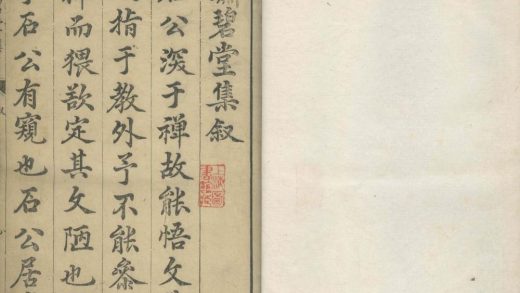 碧堂集叙
公深于禅故能悟文
指于教外予不能参
而猥欲定其文陋也
石公有窺也石公居